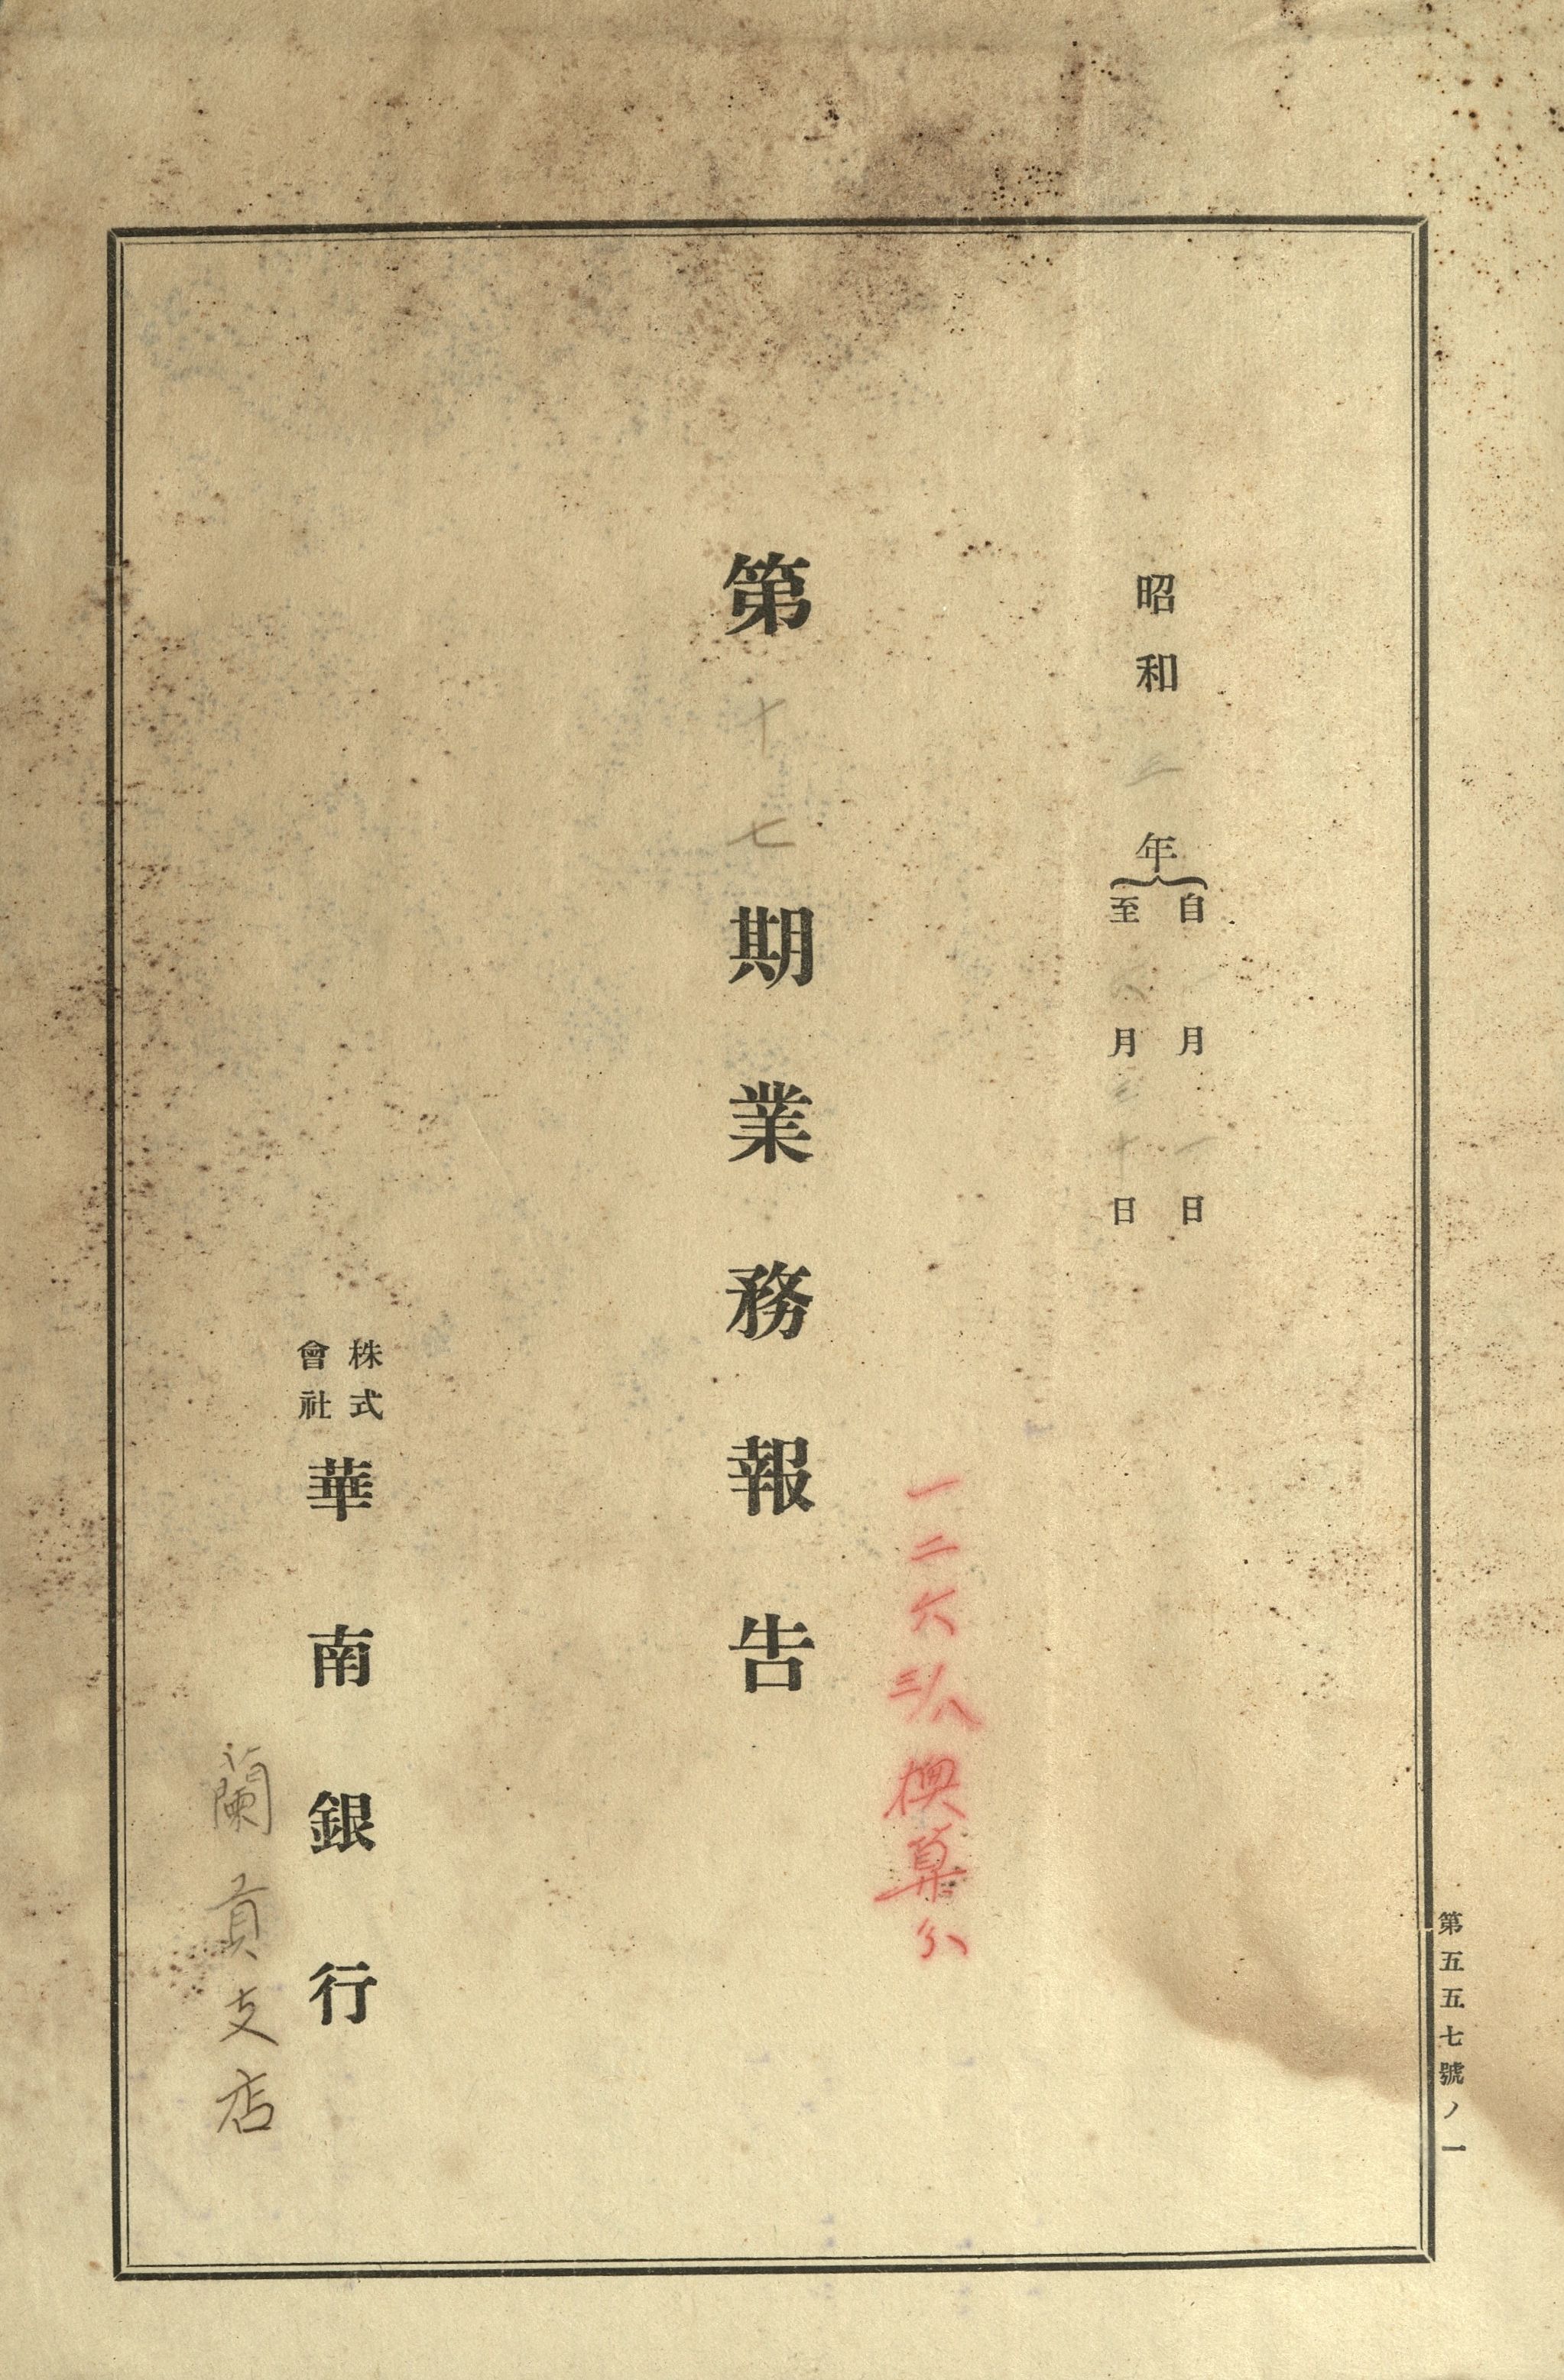 昭和三年
自一月一日
至六月三十日
第十七期業務報告
一二六三/八換算分
株式
會社
華南銀行
蘭貢支店
第五五七號ノ一